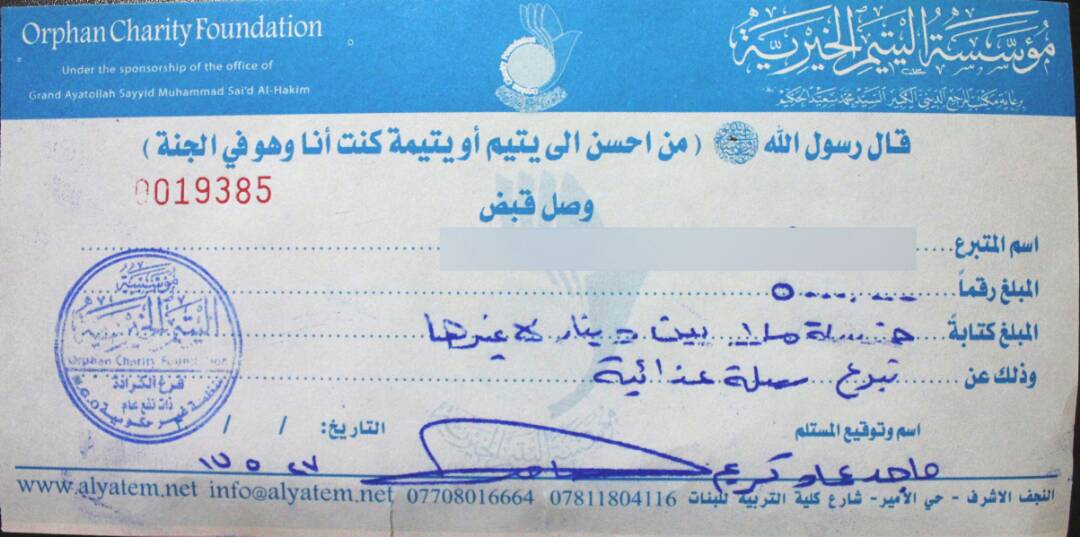 Orphan Charity Foundation
Under the sponsorship of the office of
Grand Ayatollah Sayyid Muhammad Sai'd Al-Hakim
مؤسسة اليتيم الخيرية
برعاية مكتب المرجع الديني الكبير السيد محمد سعيد الحكيم
قال رسول الله ﷺ ( من احسن الى يتيم أو يتيمة كنت أنا وهو في الجنة )
0019385
وصل قبض
اسم المتبرع
المبلغ رقماً
المبلغ كتابةً خمسة ملايين دينار لا غيرها
وذلك عن تبرع سلة غذائية
مؤسسة
اليتيم الخيرية
Orphan Charity Foundation
فرع الكرادة
ذات نفع عام
منظمة غير حكومية
اسم وتوقيع المستلم
التاريخ: / /
ماجد كريم
١٧ ٥ ٢٧
www.alyatem.net info@alyatem.net 07708016664 07811804116 النجف الاشرف - حي الأمير - شارع كلية التربية للبنات